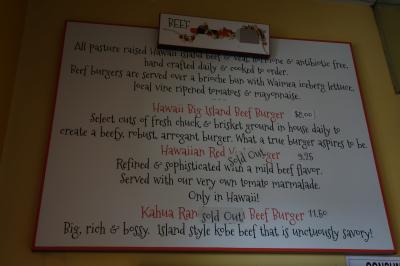 BEEF
All pasture raised Hawaii Island beef & veal, hormone & antibiotic free,
hand crafted daily & cooked to order.
Beef burgers are served over a brioche bun with Waimea iceberg lettuce,
local vine ripened tomatoes & mayonnaise.
Hawaii Big Island Beef Burger $8.00
Select cuts of fresh chuck & brisket ground in house daily to
create a beefy, robust, arrogant burger. What a true burger aspires to be.
Hawaiian Red Sold Out ger 9.25
Refined & sophisticated with a mild beef flavor.
Served with our very own tomato marmalade.
Only in Hawaii!
Kahua Ran Sold Out! Beef Burger 11.50
Big, rich & bossy. Island style kobe beef that is unctuously savory!